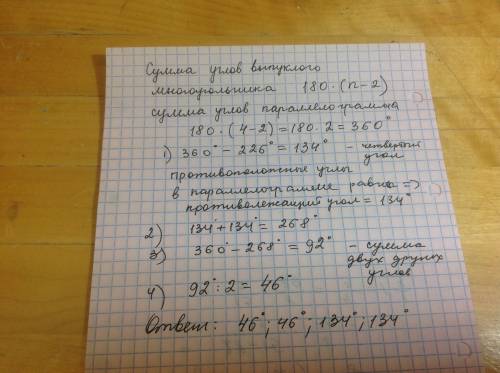 Сумма углов выпуклого
многоугольника 180·(n-2)
сумма углов параллелограмма
180·(4-2)=180·2=360°
1) 360°-226°=134° - четвертый угол
противоположные углы
в параллелограмме равны =>
противолежащий угол = 134°
2) 134°+134°=268°
3) 360°-268°=92° - сумма
двух других
углов
4) 92°:2=46°
Ответ: 46°; 46°; 134°; 134°